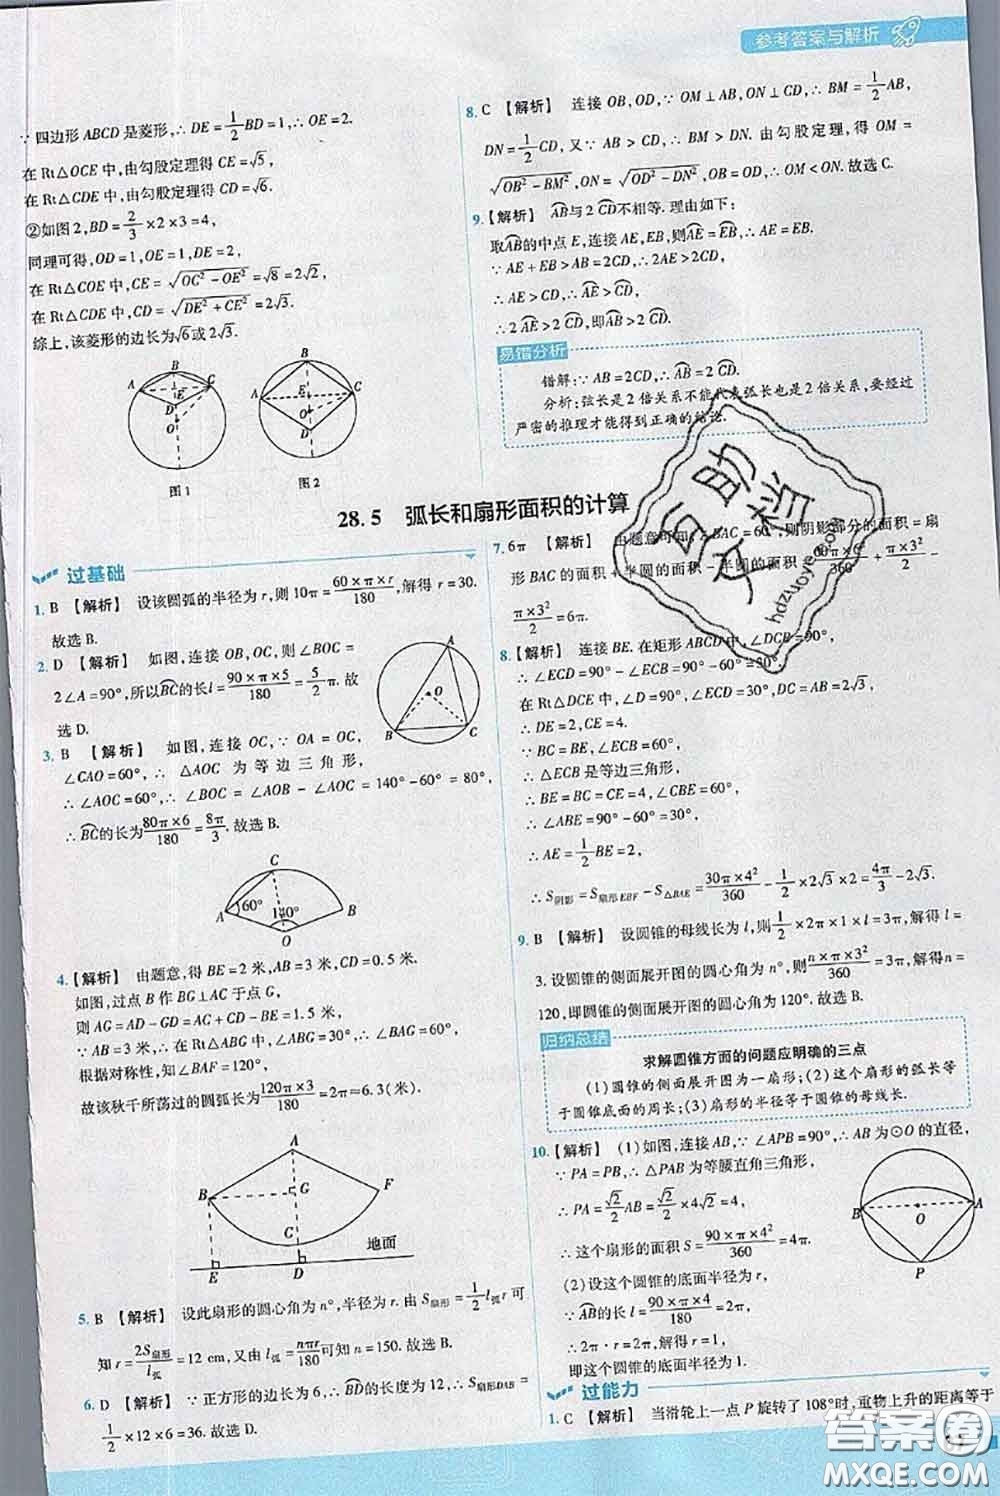 参考答案与解析
∵四边形ABCD是菱形,∴DE=1/2BD=1,∴OE=2.
在Rt△OCE中,由勾股定理得CE=√5,
在Rt△CDE中,由勾股定理得CD=√6.
②如图2,BD=2/3×2×3=4,
同理可得,OD=1,OE=1,DE=2,
在Rt△COE中,CE=√(OC²-OE²)=√8=2√2,
在Rt△CDE中,CD=√(DE²+CE²)=2√3.
综上,该菱形的边长为√6或2√3.
A B C D E O
图1
A B C D E O
图2
8. C 【解析】 连接OB,OD,∵OM⊥AB,ON⊥CD,∴BM=1/2AB,
DN=1/2CD,又∵AB>CD,∴BM>DN.由勾股定理,得OM=
√(OB²-BM²),ON=√(OD²-DN²),OB=OD,∴OM<ON.故选C.
9.【解析】 AB与2CD不相等.理由如下:
取AB的中点E,连接AE,EB,则AE=EB,∴AE=EB.
∵AE+EB>AB=2CD,∴2AE>2CD,
∴AE>CD,∴AE>CD,
∴2AE>2CD,即AB>2CD.
易错分析
错解:∵AB=2CD,∴AB=2CD.
分析:弦长是2倍关系不能代表弧长也是2倍关系,要经过
严密的推理才能得到正确的结论.
28.5 弧长和扇形面积的计算
过基础
1. B 【解析】 设该圆弧的半径为r,则10π=60×π×r/180,解得r=30.
故选B.
2. D 【解析】 如图,连接OB,OC,则∠BOC=
2∠A=90°,所以BC的长l=90×π×5/180=5/2π.故
选D.
A B C O
3. B 【解析】 如图,连接OC,∵OA=OC,
∠CAO=60°,∴△AOC为等边三角形,
∴∠AOC=60°,∴∠BOC=∠AOB-∠AOC=140°-60°=80°,
∴BC的长为80π×6/180=8π/3.故选B.
C A 60° B 140° O
4.【解析】 由题意,得BE=2米,AB=3米,CD=0.5米.
如图,过点B作BG⊥AC于点G,
则AG=AD-GD=AC+CD-BE=1.5米,
∵AB=3米,∴在Rt△ABG中,∠ABG=30°,∴∠BAG=60°.
根据对称性,知∠BAF=120°,
故该秋千所荡过的圆弧长为120π×3/180=2π≈6.3(米).
A B G F C E D 地面
5. B 【解析】 设此扇形的圆心角为n°,半径为r.由S扇形=1/2l弧r可
知r=2S扇形/l弧=12 cm,又由l弧=nπr/180可知n=150.故选B.
6. D 【解析】 ∵正方形的边长为6,∴BD的长度为12,∴S扇形DAB=
1/2×12×6=36.故选D.
7. 6π 【解析】 由题意可知,∠BAC=60°,则阴影部分的面积=扇
形BAC的面积+半圆的面积-半圆的面积=60π×6²/360+π×3²/2-
π×3²/2=6π.
8.【解析】 连接BE.在矩形ABCD中,∠DCB=90°,
∴∠ECD=90°-∠ECB=90°-60°=30°.
在Rt△DCE中,∠D=90°,∠ECD=30°,DC=AB=2√3,
∴DE=2,CE=4.
∵BC=BE,∠ECB=60°,
∴△ECB是等边三角形,
∴BE=BC=CE=4,∠CBE=60°,
∴∠ABE=30°,
∴AE=1/2BE=2,
∴S阴影=S扇形EBF-S△BAE=30π×4²/360-1/2×2√3×2=4/3π-2√3.
9. B 【解析】 设圆锥的母线长为l,则1/2×2π×1×l=3π,解得l=
3.设圆锥的侧面展开图的圆心角为n°,则n×π×3²/360=3π,解得n=
120,即圆锥的侧面展开图的圆心角为120°.故选B.
归纳总结
求解圆锥方面的问题应明确的三点
(1)圆锥的侧面展开图为一扇形;(2)这个扇形的弧长等
于圆锥底面的周长;(3)扇形的半径等于圆锥的母线长.
10.【解析】 (1)如图,连接AB,∵∠APB=90°,∴AB为⊙O的直径,
∵PA=PB,∴△PAB为等腰直角三角形,
∴PA=√2/2AB=√2/2×4√2=4,
∴这个扇形的面积S=90×π×4²/360=4π.
(2)设这个圆锥的底面半径为r,
∵AB的长l=90×π×4/180=2π,
∴2π·r=2π,解得r=1,
即这个圆锥的底面半径为1.
B O A P
过能力
1. C 【解析】 当滑轮上一点P旋转了108°时,重物上升的距离等于
百助文档
hdzuoye.com
答案圈
MXQE.COM